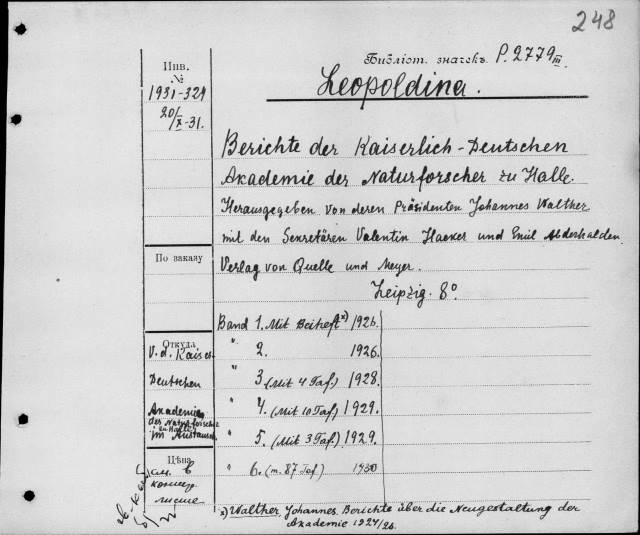 248
Библіот. значекъ P. 2779 III.
Инв.
№
1931-324
20/X-31.
Leopoldina.
Berichte der Kaiserlich-Deutschen
Akademie der Naturforscher zu Halle.
Herausgegeben von deren Präsidenten Johannes Walther
mit den Sekretären Valentin Haeker und Emil Abderhalden.
По заказу
Verlag von Quelle und Meyer.
Leipzig. 8°
Band 1. Mit Beiheft x) 1926.
Откуда
" 2. 1926.
V. d. Kaiserl-
Deutschen
" 3 (Mit 4 Taf.) 1928.
Akademie
der Naturforscher
zu Halle
im Austausch.
" 4. (Mit 10 Taf) 1929.
" 5. (Mit 3 Taf.) 1929.
Цѣна
" 6. (m. 87 Taf) 1930
см. в
контр.
листе
x) Walther, Johannes. Berichte über die Neugestaltung der
Akademie 1924/26.